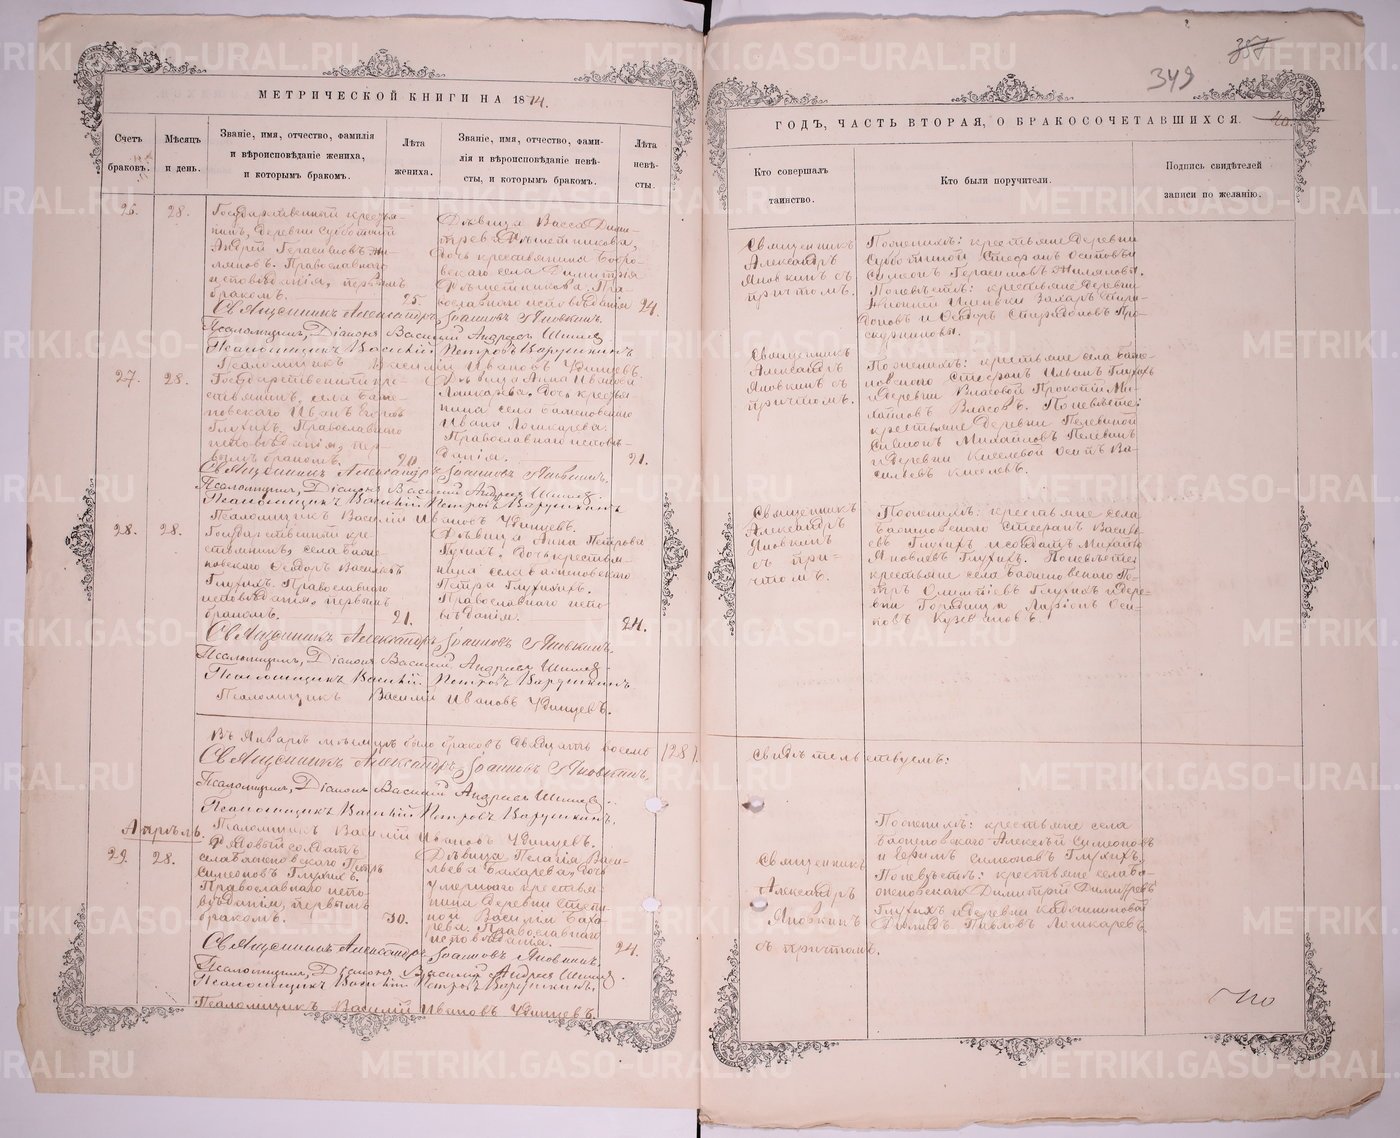 МЕТРИЧЕСКОЙ КНИГИ НА 1874.
Счетъ браковъ.
Мѣсяцъ и день.
Званіе, имя, отчество, фамилія
и вѣроисповѣданіе жениха,
и которымъ бракомъ.
Лѣта
жениха.
Званіе, имя, отчество, фами-
лія и вѣроисповѣданіе невѣ-
сты, и которымъ бракомъ.
Лѣта
невѣ-
сты.
26.
28.
Государственный кресть-
янинъ, деревни Субботиной
Андрей Герасимовъ
Православнаго
исповѣданія, первымъ
бракомъ.
25.
Дѣвица Васса Дими-
тріева Рѣшетникова,
дочь крестьянина Бобро-
вскаго села Димитрія
Рѣшетникова. Пра-
вославнаго исповѣданія
24.
Священникъ Александръ Іоанновъ Яновкинъ.
Псаломщикъ, Діаконъ Василій Андреевъ Шишевъ
Псаломщикъ Василій Петровъ Варушкинъ
Псаломщикъ Василій Ивановъ Удинцевъ.
27.
28.
Государственный кре-
стьянинъ, села Баже-
новскаго Иванъ Егоровъ
Глухихъ. Православнаго
исповѣданія, пер-
вымъ бракомъ.
20.
Дѣвица Анна Иванова
Лошкарева. Дочь кресть-
янина села Баженовскаго
Ивана Лошкарева.
Православнаго исповѣ-
данія.
21.
Священникъ Александръ Іоанновъ Яновкинъ.
Псаломщикъ, Діаконъ Василій Андреевъ Шишевъ.
Псаломщикъ Василій Петровъ Варушкинъ
Псаломщикъ Василій Ивановъ Удинцевъ.
28.
28.
Государственный кре-
стьянинъ, села Баже-
новскаго Ѳедоръ Васильевъ
Глухихъ. Православнаго
исповѣданія, первымъ
бракомъ.
21.
Дѣвица Анна Петрова
Глухихъ. Дочь крестья-
нина села Баженовскаго
Петра Глухихъ.
Православнаго испо-
вѣданія.
24.
Священникъ Александръ Іоанновъ Яновкинъ.
Псаломщикъ, Діаконъ Василій Андреевъ Шишевъ.
Псаломщикъ Василій Петровъ Варушкинъ.
Псаломщикъ Василій Ивановъ Удинцевъ.
Въ Январѣ мѣсяцѣ было браковъ двадцать восемь (28).
Священникъ Александръ Іоанновъ Яновкинъ.
Псаломщикъ, Діаконъ Василій Андреевъ Шишевъ.
Псаломщикъ Василій Петровъ Варушкинъ,
Псаломщикъ Василій Ивановъ Удинцевъ.
Апрѣль.
29.
28.
Рядовый солдатъ
села Баженовскаго Петръ
Симеоновъ Глухихъ.
Православнаго испо-
вѣданія, первымъ
бракомъ.
30.
Дѣвица Пелагія Васи-
льева Бахарева, дочь
умершаго крестья-
нина деревни
Василья Баха-
рева. Православнаго
исповѣданія.
24.
Священникъ Александръ Іоанновъ Яновкинъ.
Псаломщикъ, Діаконъ Василій Андреевъ Шишевъ.
Псаломщикъ Василій Петровъ Варушкинъ.
Псаломщикъ Василій Ивановъ Удинцевъ.
357
349
ГОДЪ, ЧАСТЬ ВТОРАЯ, О БРАКОСОЧЕТАВШИХСЯ.
40.
Кто совершалъ
таинство.
Кто были поручители.
Подпись свидѣтелей
записи по желанію.
Священникъ
Александръ
Яновкинъ съ
причтомъ.
По женихѣ: крестьяне деревни
Субботиной Стефанъ Осиповъ и
Симеонъ Герасимовъ
По невѣстѣ: крестьяне деревни
Захаръ Спири-
доновъ и Ѳедоръ Спиридоновъ Про-
скурниковы.
Священникъ
Александръ
Яновкинъ съ
причтомъ.
По женихѣ: крестьяне села Баже-
новскаго Стефанъ Ильинъ Глухихъ
и деревни Власовой Прокопій Ми-
хайловъ Власовъ. По невѣстѣ:
крестьяне деревни Пелевиной
Симеонъ Михайловъ Пелевинъ
и деревни Киселевой Осипъ Ва-
сильевъ Киселевъ.
Священникъ
Александръ
Яновкинъ
съ при-
чтомъ.
По женихѣ: крестьяне села
Баженовскаго Стефанъ Василь-
евъ Глухихъ и солдатъ Михаилъ
Яковлевъ Глухихъ. По невѣстѣ:
крестьяне села Баженовскаго Пе-
тръ Глухихъ и дере-
вни Ларіонъ Оси-
повъ
Свидѣтельствуемъ:
Священникъ
Александръ
Яновкинъ
съ причтомъ.
По женихѣ: крестьяне села
Баженовскаго Алексѣй Симеоновъ
и Ефимъ Симеоновъ Глухихъ.
По невѣстѣ: крестьяне села Ба-
женовскаго Димитрій Димитріевъ
Глухихъ и деревни
Филипъ Павловъ Лошкаревъ.
METRIKI.GASO-URAL.RU